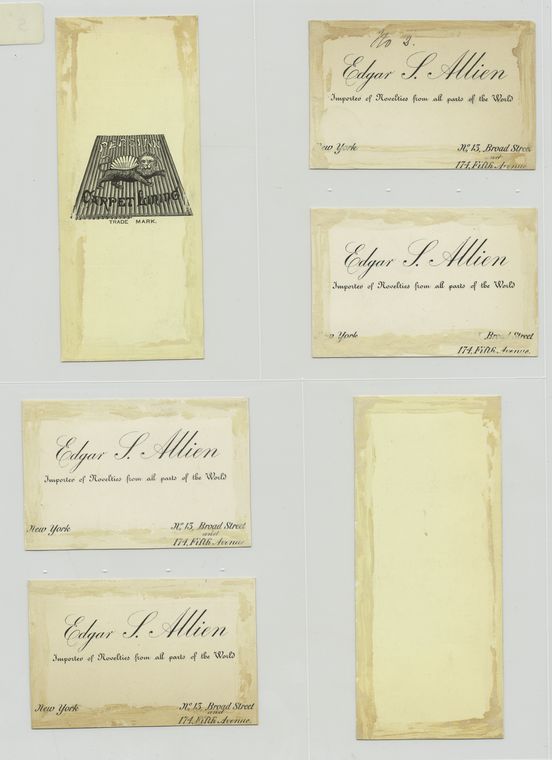 PERSIAN
CARPET LINING
TRADE MARK.
No 2.
Edgar S. Allien
Importer of Novelties from all parts of the World
New York
No. 13, Broad Street
and
174, Fifth Avenue
Edgar S. Allien
Importer of Novelties from all parts of the World
York
Broad Street
174, Fifth Avenue.
Edgar S. Allien
Importer of Novelties from all parts of the World
New York
No. 13, Broad Street
and
174, Fifth Avenue
Edgar S. Allien
Importer of Novelties from all parts of the World
New York
No. 13, Broad Street
and
174, Fifth Avenue.